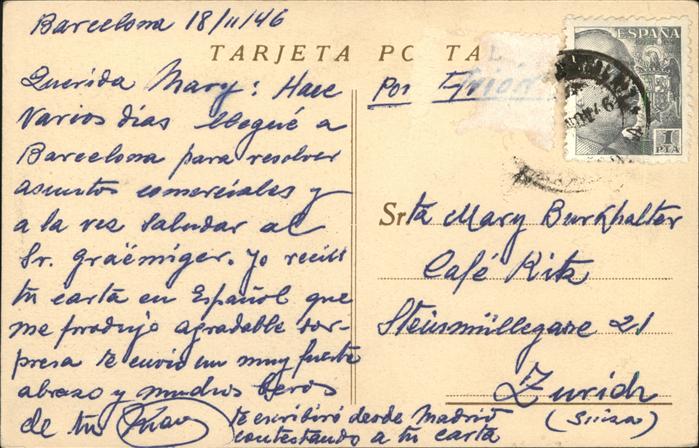 Barcelona 18/11/46
TARJETA POSTAL
Querida Mary: Hace
varios días llegué a
Barcelona para resolver
asuntos comerciales y
a la vez saludar al
Sr. Graëmiger. Yo recibí
tu carta en Español que
me produjo agradable sor-
presa te envio un muy fuerte
abrazo y muchos besos
de tu Juan
te escribiré desde Madrid
contestando a tu carta
Por Avión
ESPAÑA
1
PTA
Srta Mary Burkhalter
Café Ritz
21
Zurich
(Suiza)